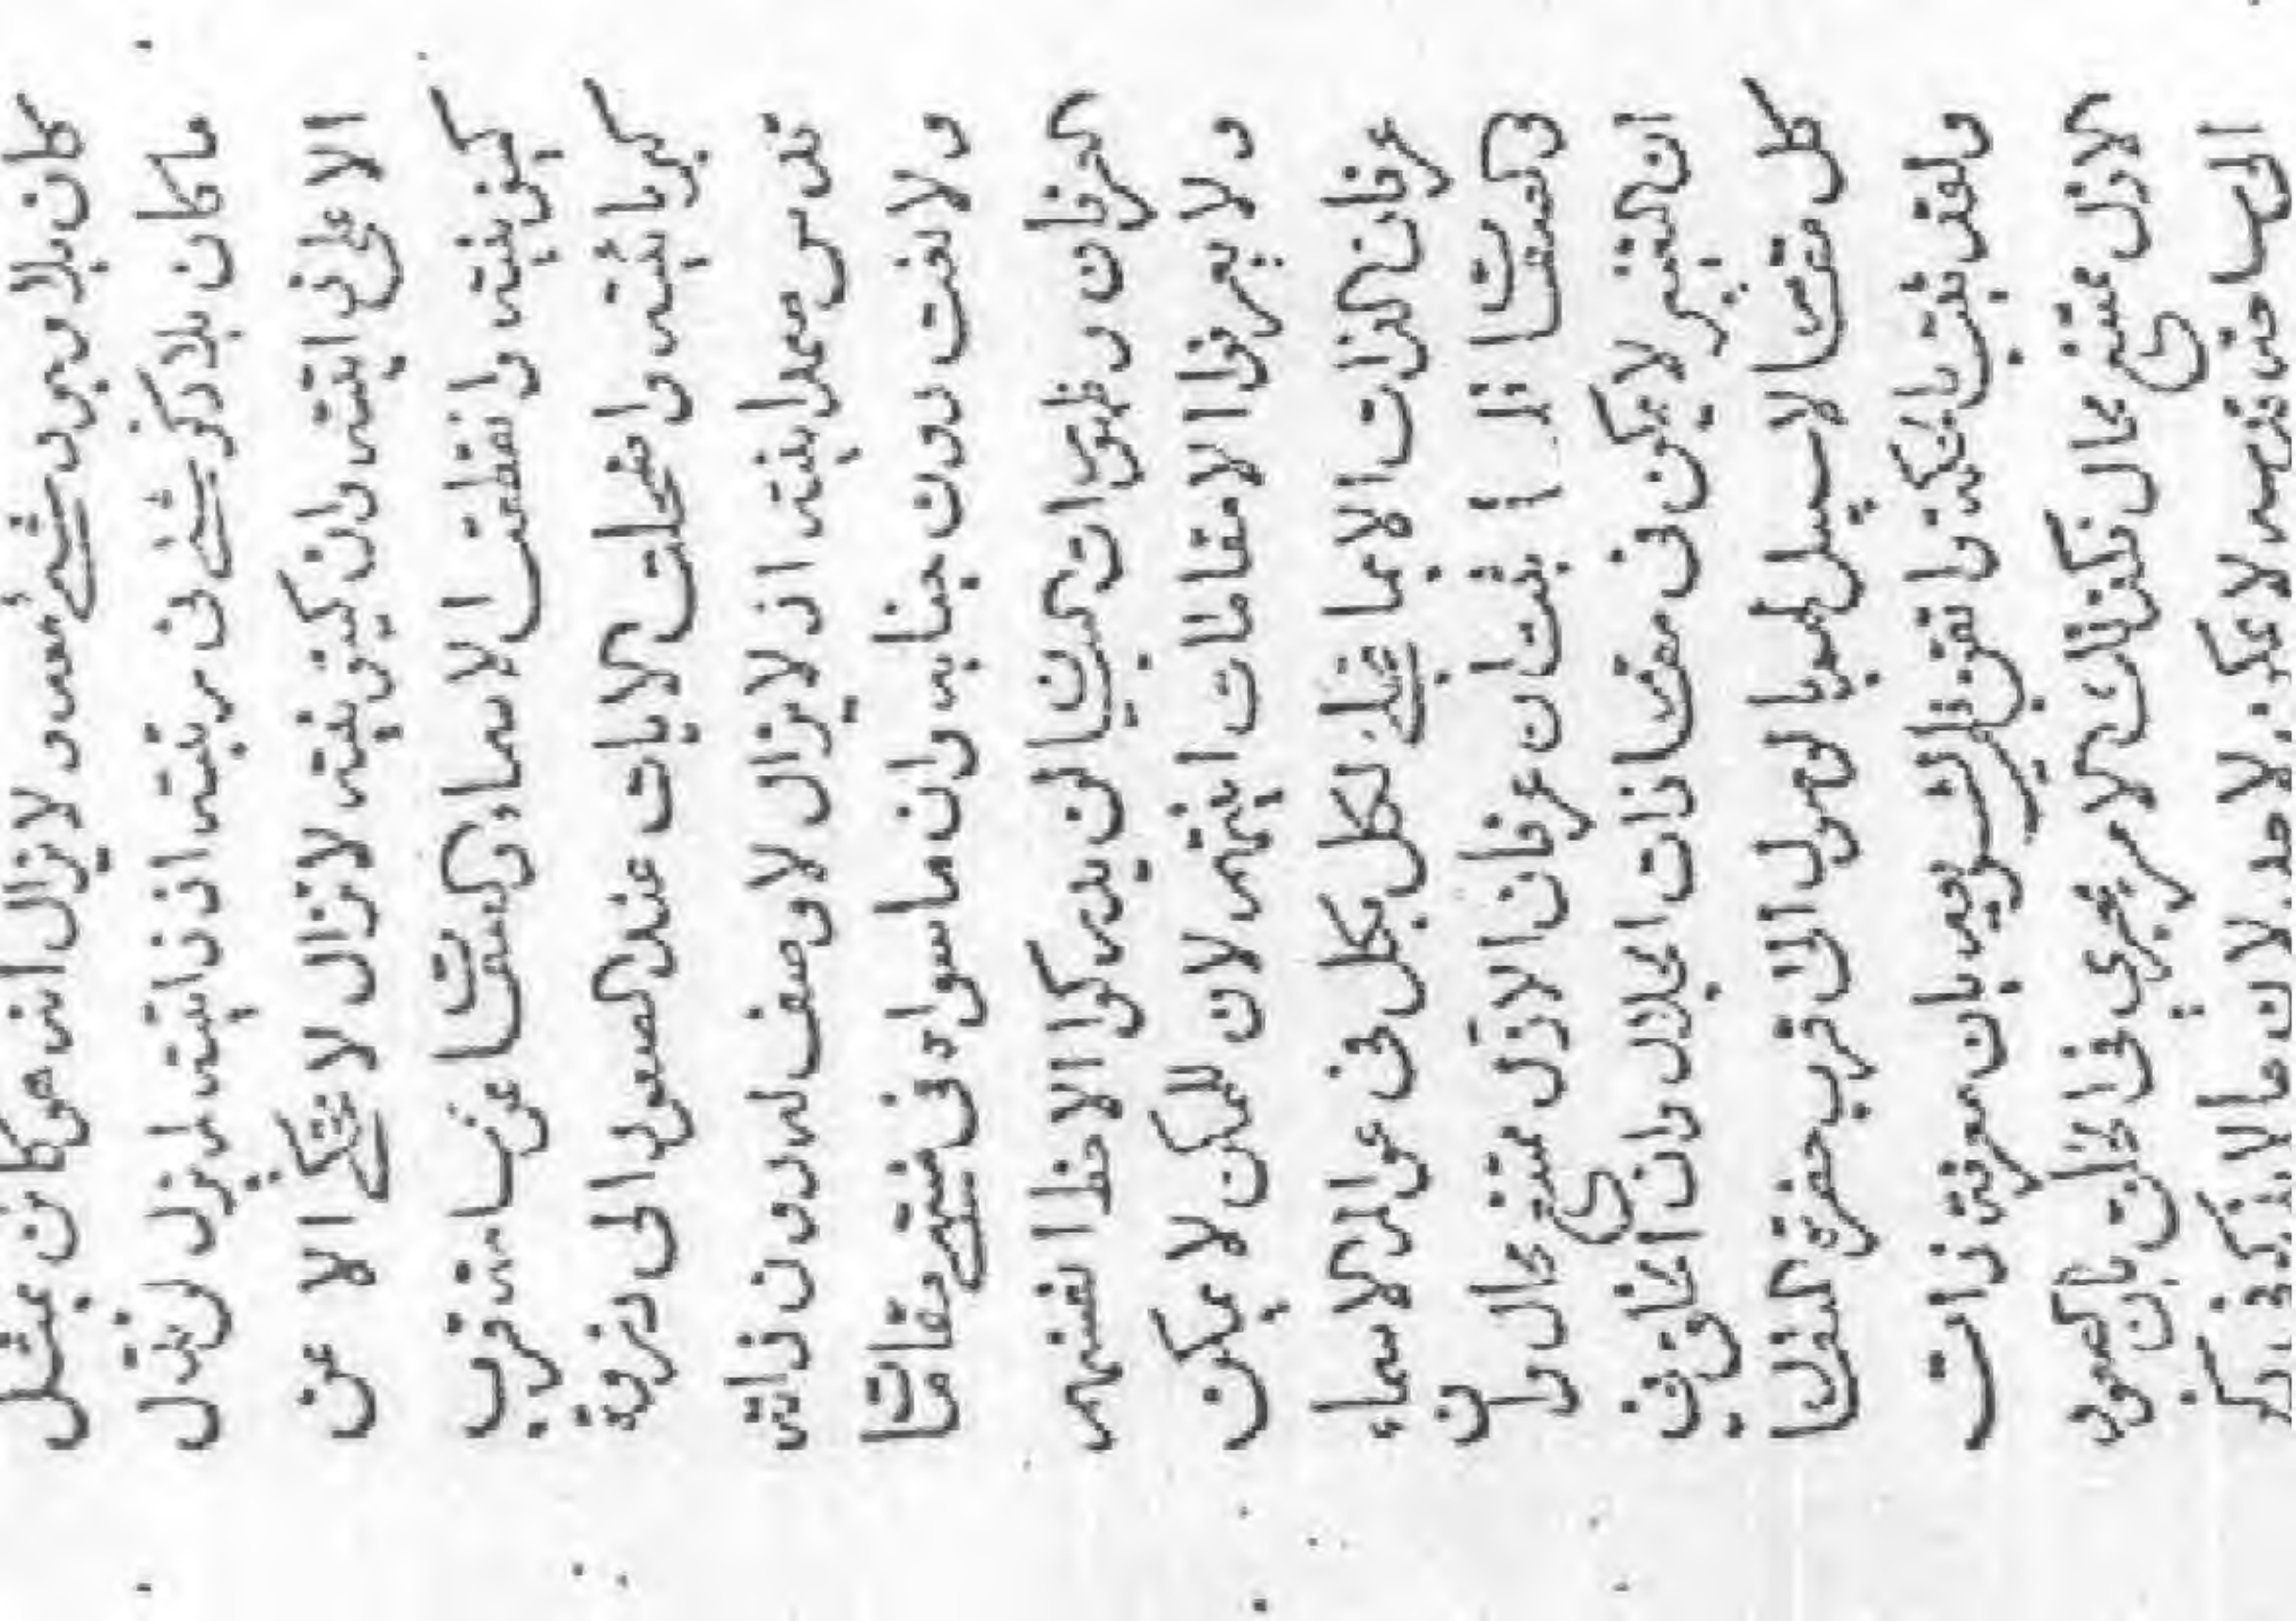 كان بلا وجود شیء معه ولا يزال انه هو كائن بمثل
ما كان بلا ذكر شیء في رتبته اذ ذاتيته لم يزل لن تدل
الا علی ذاتيته وان كينونيته لا تزال لا تحكی الا عن
كينونيته وانقطعت الاسماء والصفات عن ساحة قرب
كبريائيته واضمحلت الايات عند الصعود الی ذروة
قدس صمدانيته اذ لا يزال لا وصف له دون ذاته
ولا نعت دون جنابه وان ما سواه في منتهی مقامات
العرفان وظهورات البيان لن يدركوا الا حظ انفسهم
ولا يعرفوا الا مقامات انيتهم لان الممكن لا يمكن
عرفان الذات الا بما تجلی لكل بكل في عوالم الاسماء
والصفات اذ اثبت ان عرفان الازل ممتنع محال وان
ان التغيير لا يمكن في مقام ذات الجلال وان الخلق في
كل مقام لا سبيل لهم بالوصول الی قرب حضرة الذات
ولقد ثبت بالحكمة واتقن ذلك سر بعد بان معرفة ذات
الازل ممتنع محال فكذلك الامر يجري في الخلق بان الصعود
اليها حق فضه لا يمكن لاحد لان ما لا يذكر في ذكر